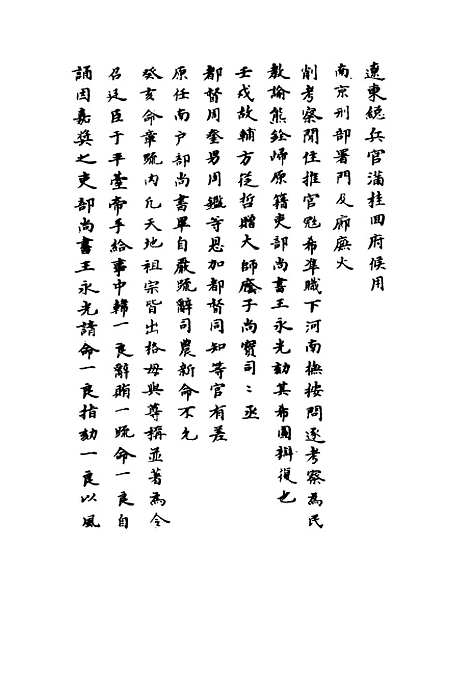 遼東總兵官滿桂回府候用
南京刑部署門及廊廡火
削考察閒住推官魁希準職下河南撫按問逐考察為民
教諭熊銓歸原籍吏部尚書王永光劾其希圖辨復也
壬戌故輔方從哲贈大師廕子尚寶司司丞
都督周奎男周鑑等恩加都督同知等官有差
原任南户部尚書畢自嚴疏辭司農新命不允
癸亥命章疏內凡天地祖宗皆出格毋與尊稱並著為令
召廷臣于平臺帝手給事中韓一良辭賄一疏命一良自
誦因嘉奬之吏部尚書王永光請命一良指劾一良以風